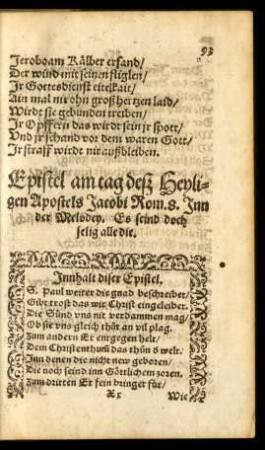 93
Jeroboam Kälber erfand/
Der wind mit seinen fliglen/
Jr Gottesdienst eitelkait/
Ain mal nit ohn groß hertzen laid/
Wirdt sie gebunden treiben/
Jr Opffern das wirdt sein jr spott/
Vnd jr schand vor dem waren Gott/
Jr straff wirdt nit außbleiben.
Epistel am tag deß Heyli-
gen Apostels Jacobi Rom. 8. Jnn
der Melodey. Es seind doch
selig alle die.
Jnnhalt diser Epistel.
S. Paul weiter die gnad beschreibet/
Gibt trost das wir Christ eingeleibet.
Die Sünd vns nit verdammen mag/
Ob sie vns gleich thůt an vil plag.
Zum andern Er entgegen helt/
Dem Christenthumb das thůn d welt.
Jnn denen die nicht new geboren/
Die noch seind inn Göttlichem zoren.
Zum dritten Er fein bringet für/
Xx Wie